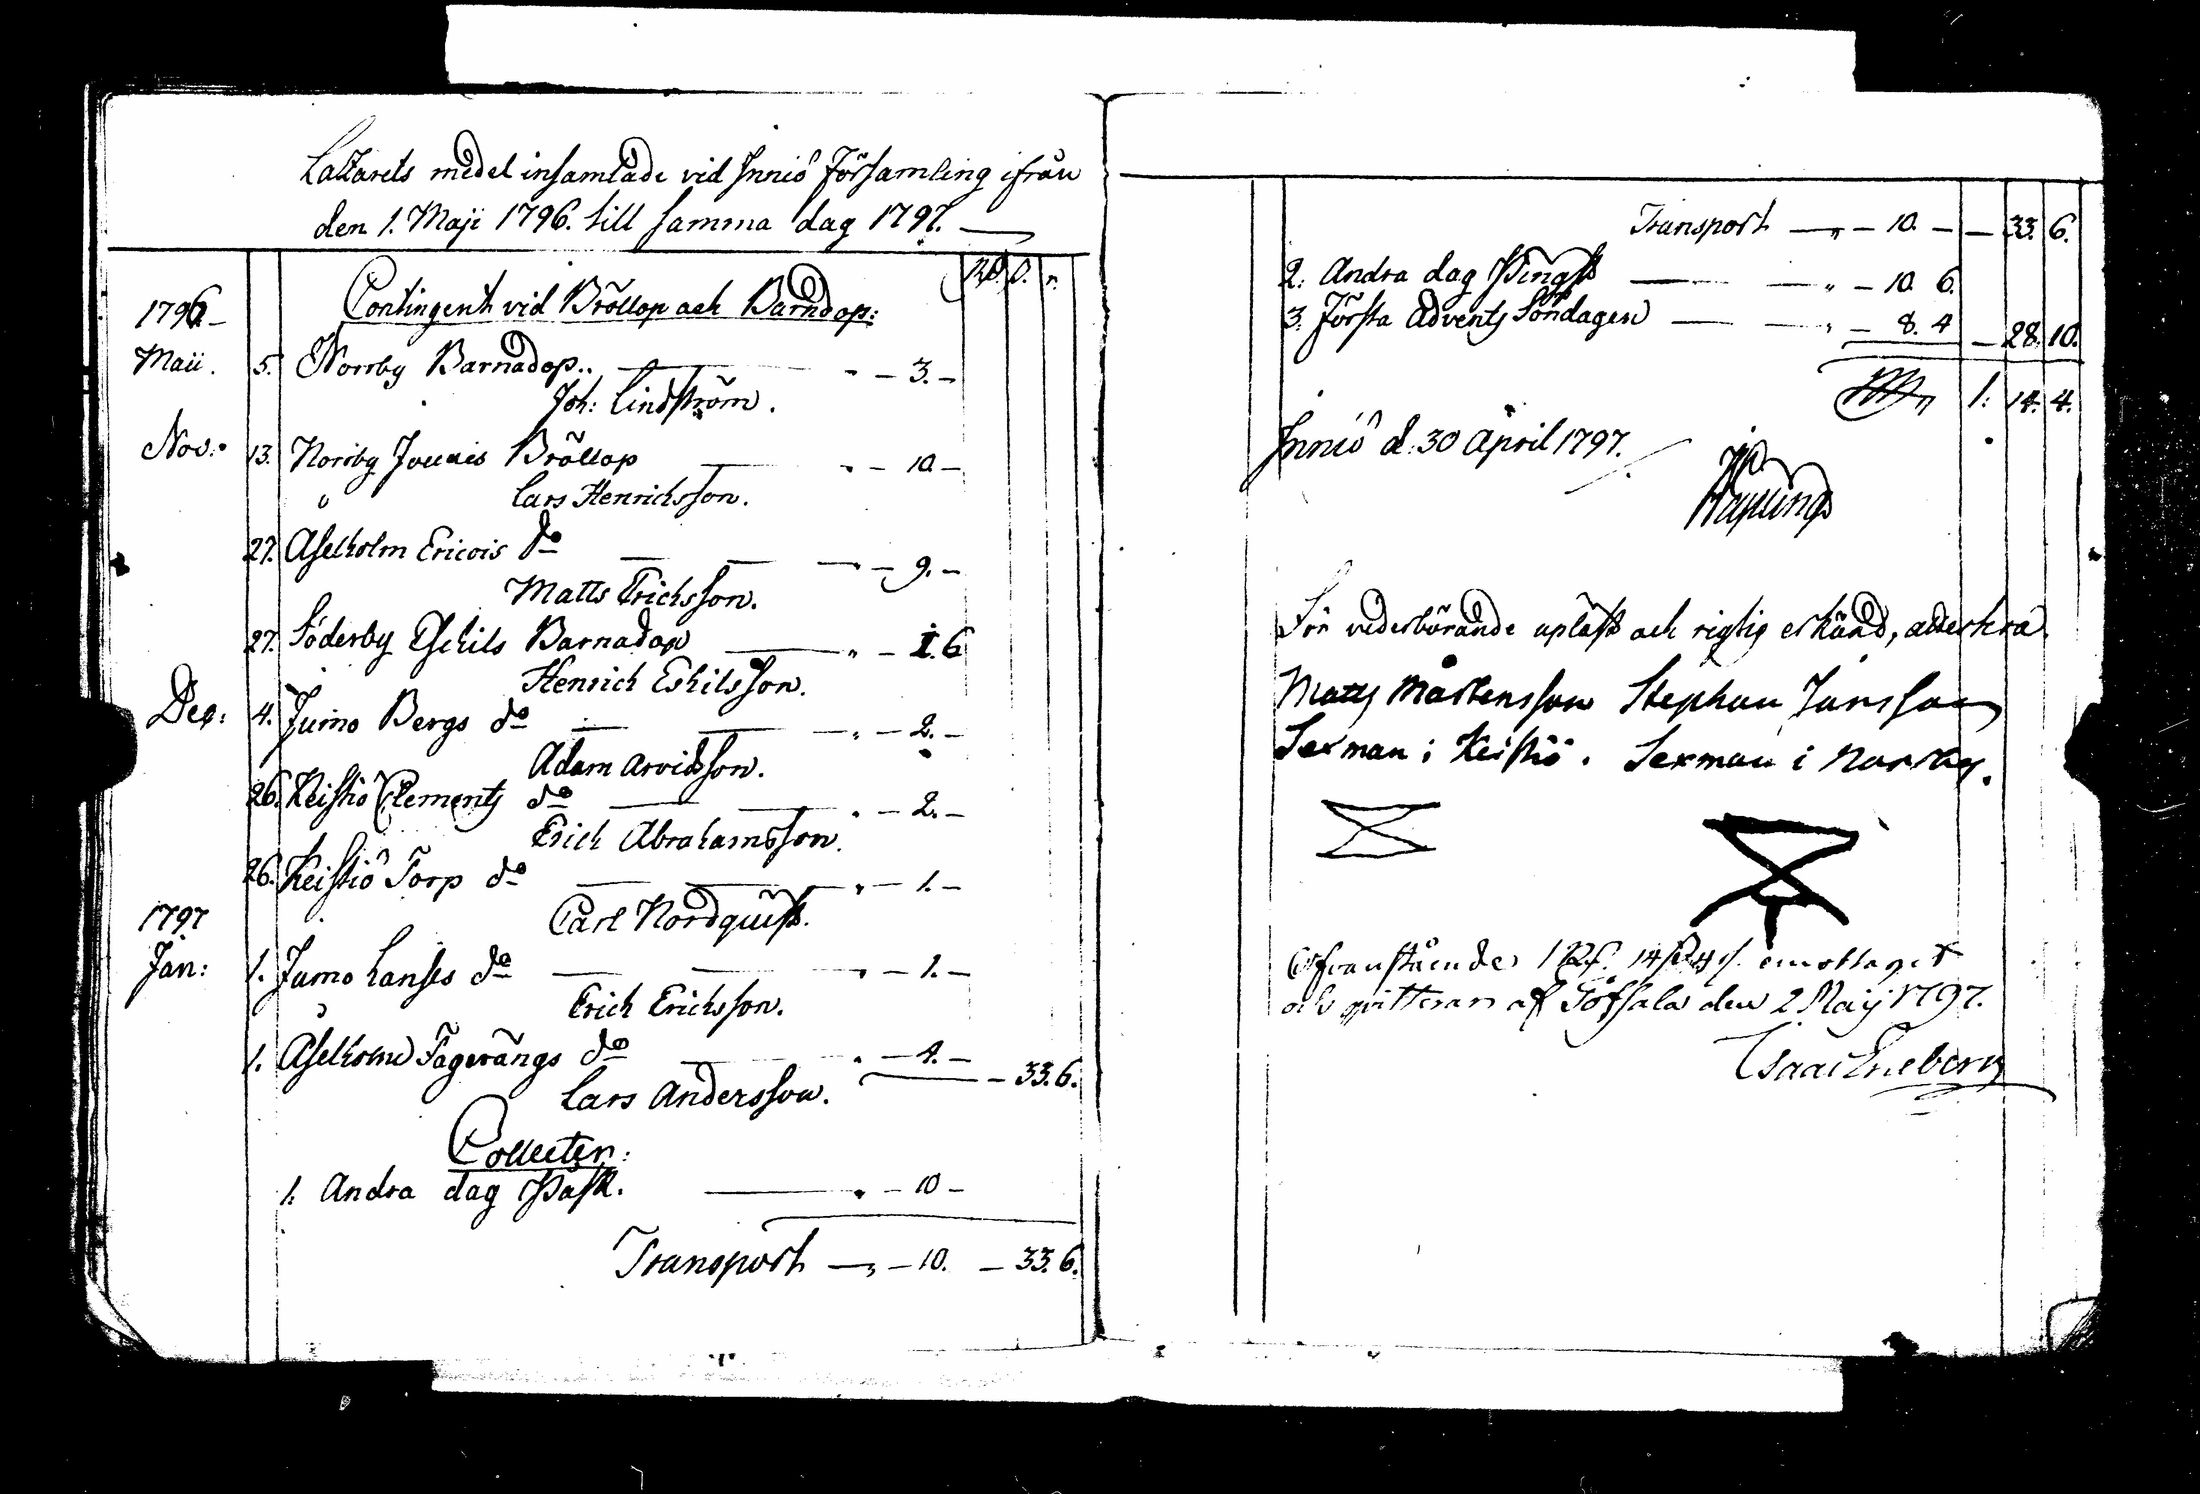 Lazarets medel insamlade vid Inniö Församling ifrån
den 1. Maji 1796. till samma dag 1797. —
Contingent vid Bröllop och Barndop: Rd. ß. r.
1796.
Maii. 5. Norrby Barnadop.. — „ — 3. —
Joh: Lindström.
Nov: 13. Norrby Bröllop — „ — 10 —
Lars Henrichsson.
27. Aselholm Ericois do — „ — 9. —
Matts Erichsson.
27. Söderby Eskils Barnadop — „ — 1. 6
Henrich Eskilsson.
Dec: 4. Jumo Bergs do — „ — 2. —
Adam Arvidsson.
26. Keistiö Clements do — „ — 2. —
Erich Abrahamsson.
26. Keistiö Torp do — „ — 1. —
Carl Nordquist.
1797
Jan: 1. Jumo Lanses do — „ — 1. —
Erich Erichsson.
1. Aselholm Fagerängs do — „ — 4. — — 33. 6.
Lars Andersson.
Collecter:
1. Andra dag Påsk. — „ — 10 —
Transport — „ — 10. — 33. 6.
Transport — „ — 10. — — 33. 6.
2. Andra dag Pingst — „ — 10. 6.
3. Första Advents Söndagen — „ — 8. 4 — 28. 10.
1: 14. 4.
Inniö d. 30 April 1797.
För vederbörande upläst och rigtig erkänd, attestera
Matts Mårtensson Stephan Jansson
Sexman i Keistiö. Sexman i Norrby.
Ofvanstående 1 Rd. 14 ß 4 r. emottagit
och qvitteras af Töfsala den 2 Maij 1797.
Isaac Eneberg